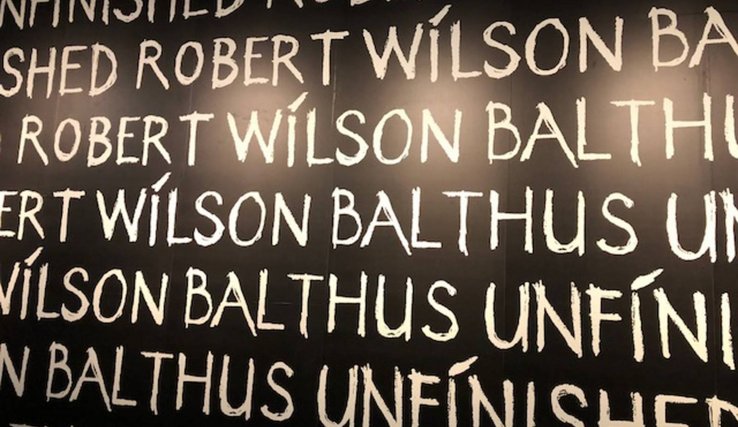 UNFINISHED ROBE
SHED ROBERT WÍLSON BA
ROBERT WÍLSON BALTHU
ERT WÍLSON BALTHUS UN
WÍLSON BALTHUS UNFÍNI
N BALTHUS UNFÍNISHED